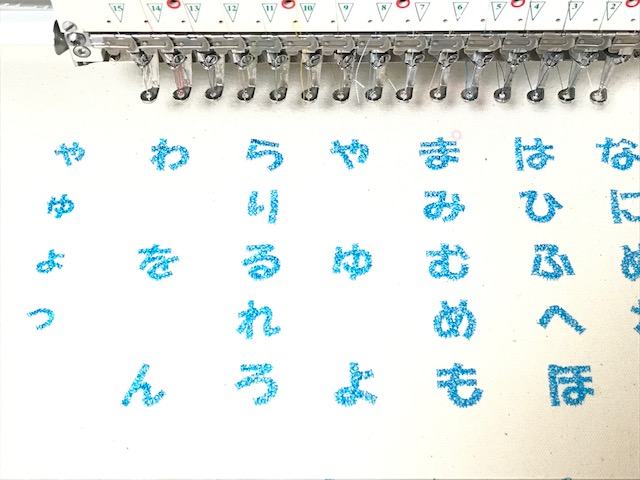 15 14 13 12 11 10 9 8 7 6 5 4 3 2
ゃ わ ら や ま は な
ゅ り み ひ に
ょ を る ゆ む ふ ぬ
っ れ め へ
ん ろ よ も ほ